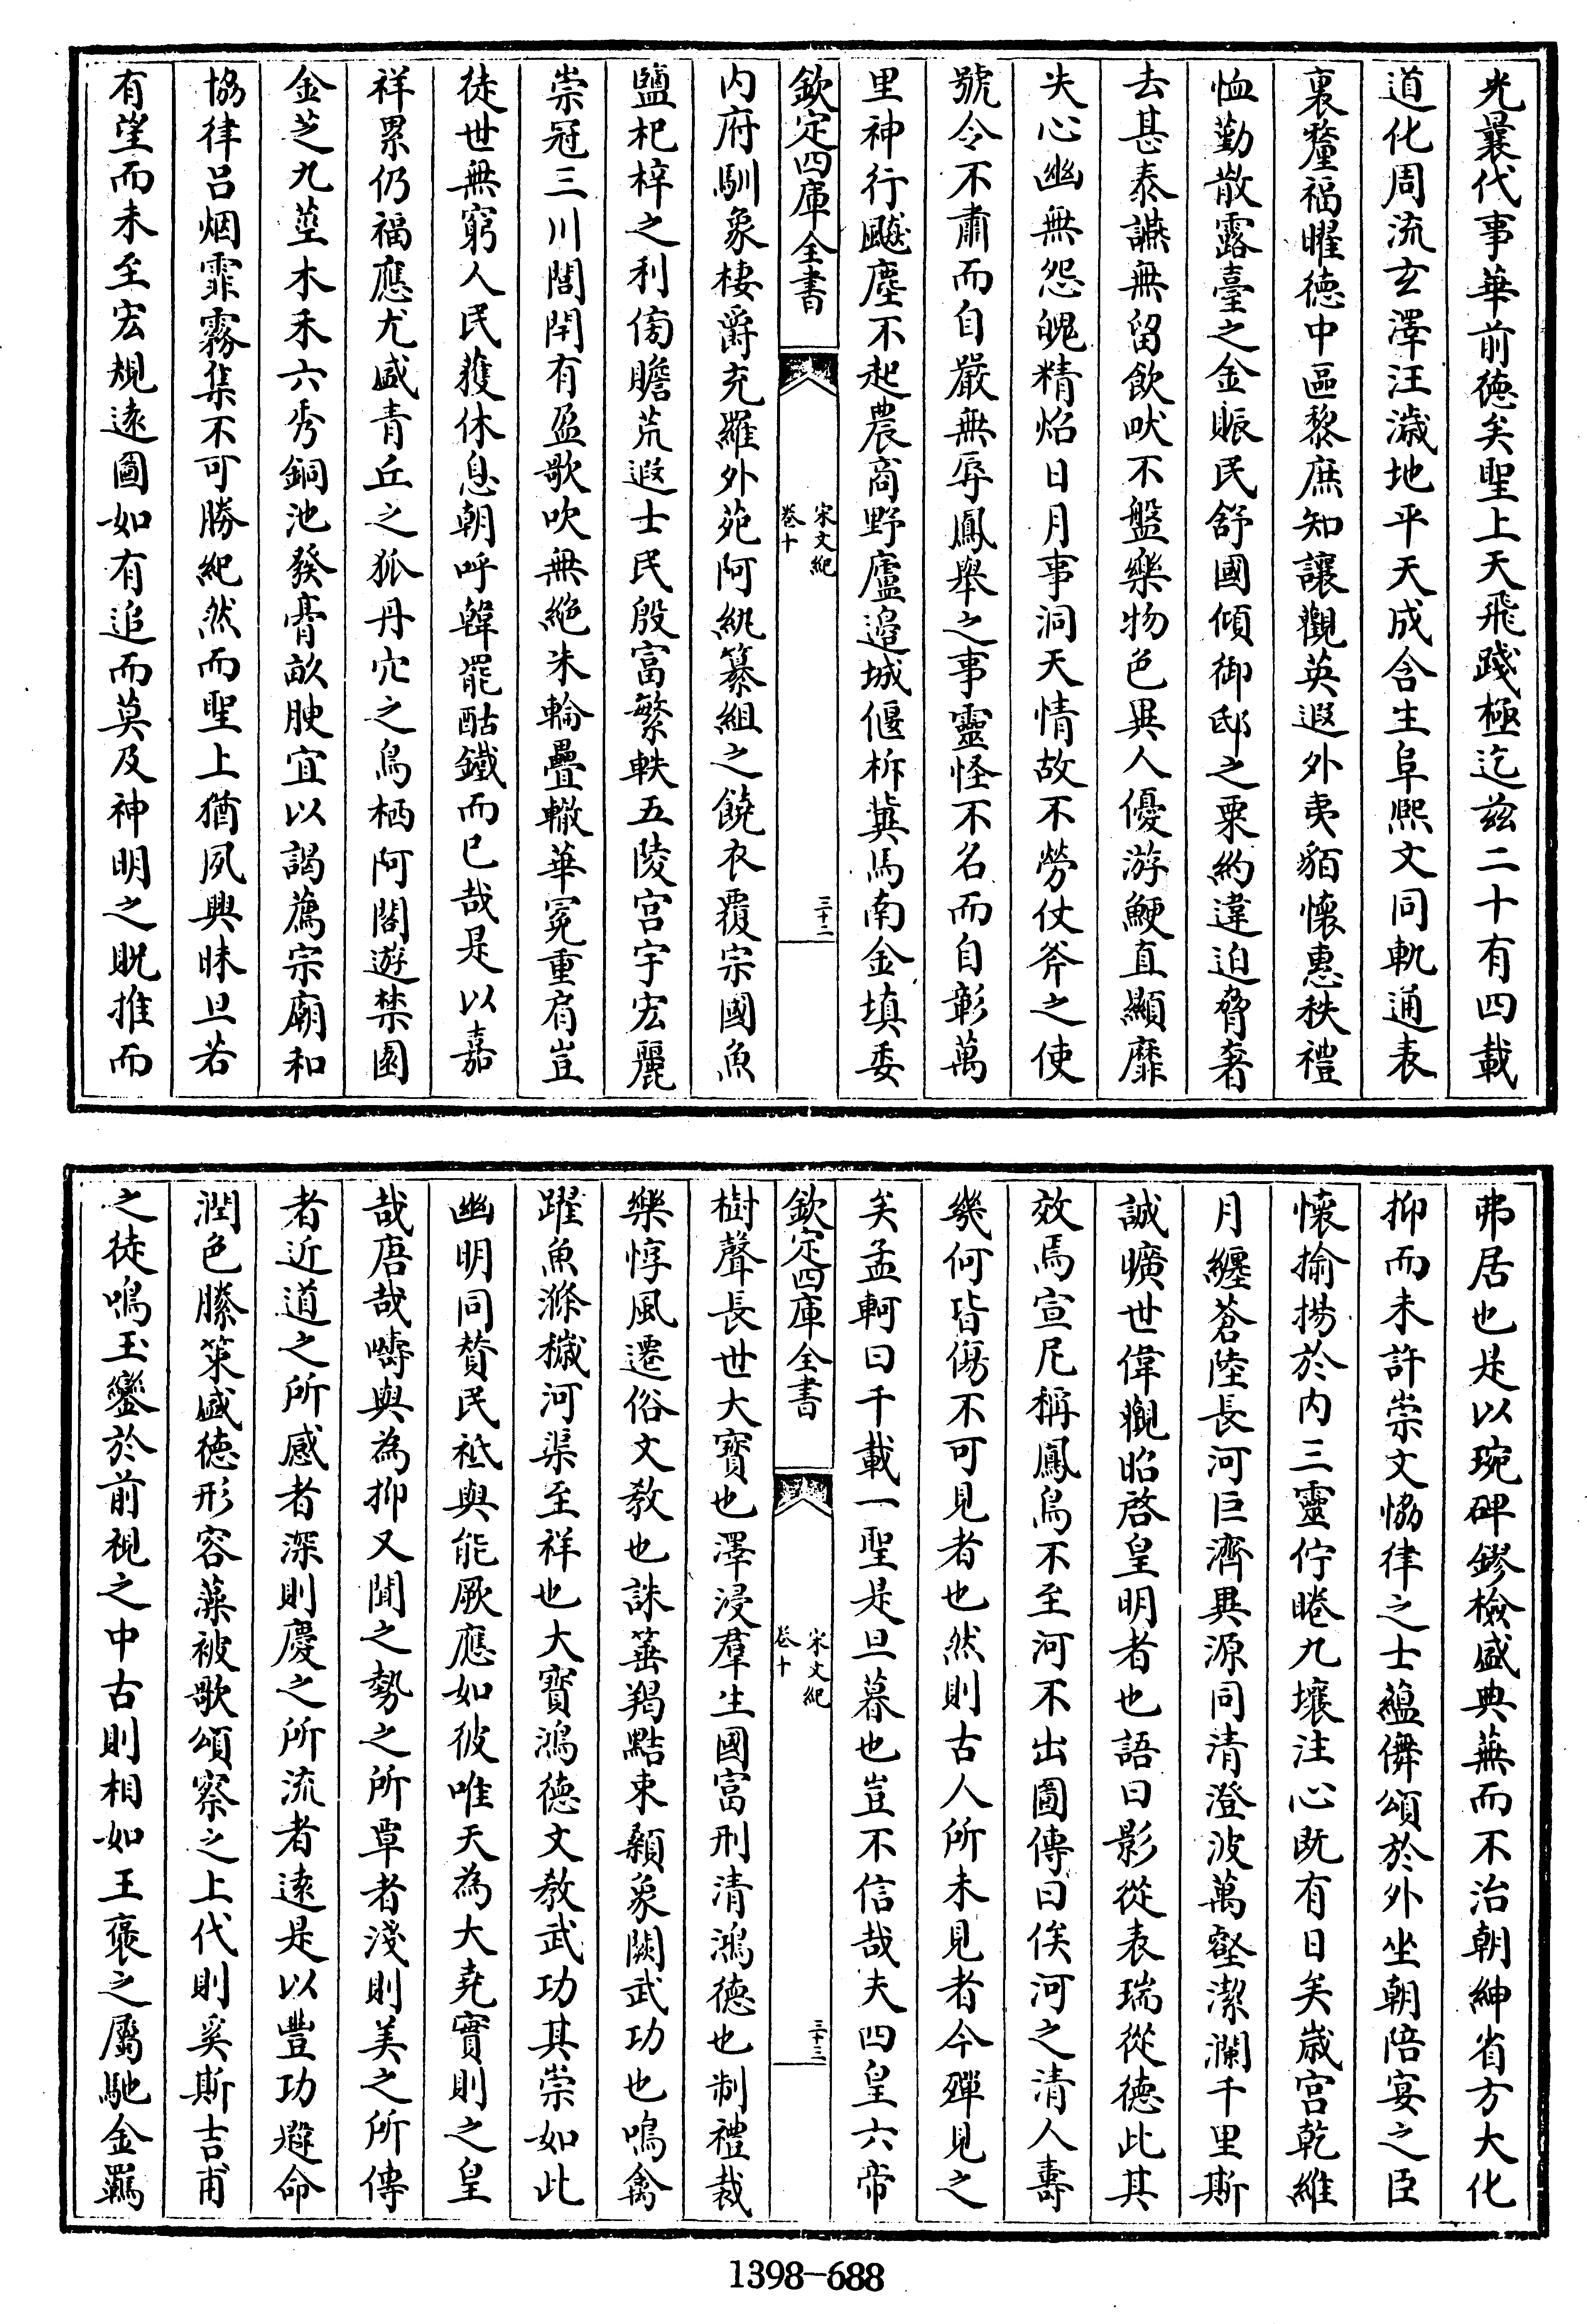 光曩代事華前徳矣聖上天飛踐極迄兹二十有四載
道化周流玄澤汪濊地平天成含生阜熙文同軌通表
裏釐福曜徳中區黎庶知讓觀英遐外夷貊懷惠秩禮
恤勤散露臺之金賑民舒國傾御邸之粟約違迫脅奢
去甚泰讌無留飲畋不盤樂物色異人優游鯁直顯靡
失心幽無怨魄精焰日月事洞天情故不勞仗斧之使
號令不肅而自嚴無辱鳳舉之事靈怪不名而自彰萬
里神行飇塵不起農商野廬邉城偃柝冀馬南金填委
欽定四庫全書
宋文紀
卷十
三十二
内府馴象棲爵充羅外苑阿紈纂組之饒衣覆宗國魚
鹽杞梓之利傍贍荒遐士民殷富繁軼五陵宫宇宏麗
崇冠三川閭閈有盈歌吹無絶朱輪疊轍華冕重肩豈
徒世無窮人民獲休息朝呼韓罷酤鐵而已哉是以嘉
祥累仍福應尤盛青丘之狐丹穴之鳥栖阿閣遊禁園
金芝九莖木禾六秀銅池發膏畝腴宜以謁薦宗廟和
協律吕烟霏霧集不可勝紀然而聖上猶夙興昧旦若
有望而未至宏規逺圖如有追而莫及神明之貺推而
弗居也是以琬碑鏐檢盛典蕪而不治朝紳省方大化
抑而未許崇文協律之士藴儛頌於外坐朝陪宴之臣
懷揄揚於内三靈佇睠九壤注心既有日矣歳宫乾維
月纏蒼陸長河巨濟異源同清澄波萬壑潔瀾千里斯
誠曠世偉觀昭啓皇明者也語曰影從表瑞從徳此其
效焉宣尼稱鳳鳥不至河不出圖傳曰俟河之清人壽
幾何皆傷不可見者也然則古人所未見者今殫見之
矣孟軻曰千載一聖是旦暮也豈不信哉夫四皇六帝
欽定四庫全書
宋文紀
卷十
三十三
樹聲長世大寳也澤浸羣生國富刑清鴻徳也制禮裁
樂惇風遷俗文教也誅箠羯黠束顙象闕武功也鳴禽
躍魚滌穢河渠至祥也大寳鴻徳文教武功其崇如此
幽明同賛民祗與能厥應如彼唯天為大堯實則之皇
哉唐哉疇與為抑又聞之勢之所覃者淺則美之所傳
者近道之所感者深則慶之所流者逺是以豐功韙命
潤色縢策盛徳形容藻被歌頌察之上代則奚斯吉甫
之徒鳴玉鑾於前視之中古則相如王褒之屬馳金羈
1398—688